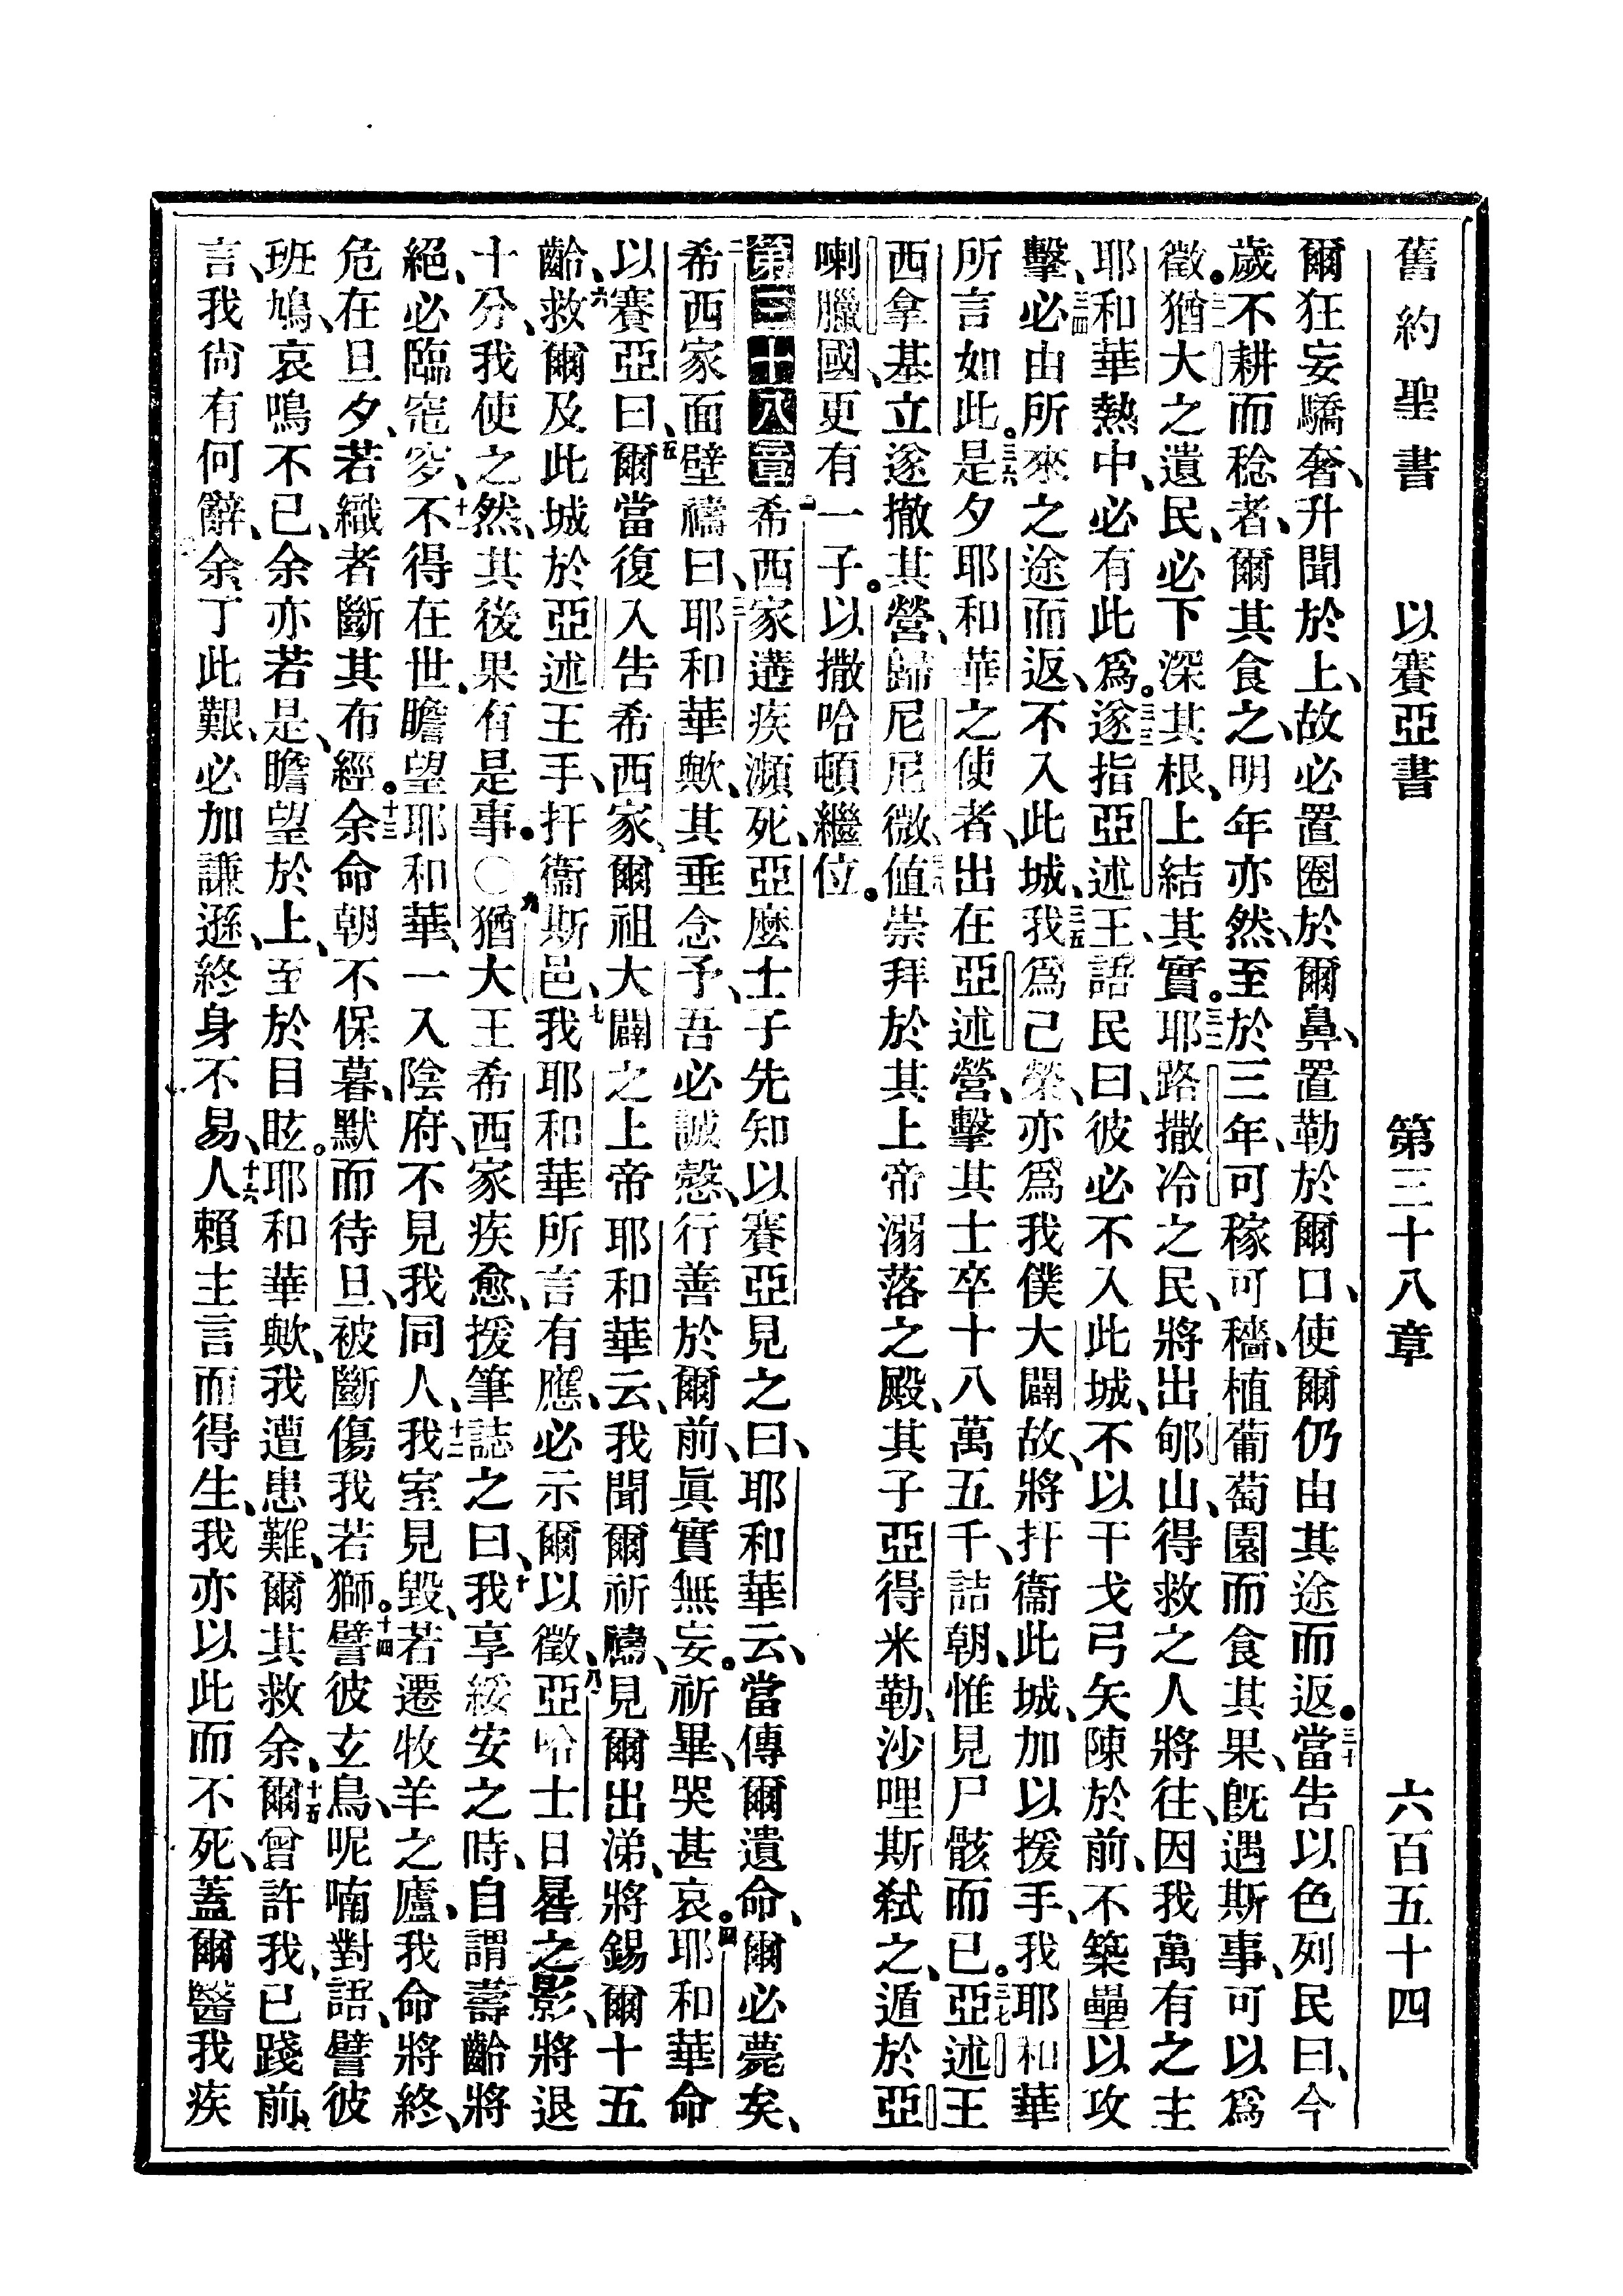 舊約聖書 以賽亞書 第三十八章 六百五十四
爾狂妄驕奢、升聞於上、故必置圈於爾鼻、置勒於爾口、使爾仍由其途而返。三十當告以色列民曰、今
歲不耕而稔者、爾其食之、明年亦然、至於三年、可稼可穡、植葡萄園而食其果、旣遇斯事、可以爲
徵。三一猶大之遺民、必下深其根、上結其實。三二耶路撒冷之民、將出郇山、得救之人將往、因我萬有之主
耶和華熱中、必有此爲。三三遂指亞述王、語民曰、彼必不入此城、不以干戈弓矢陳於前、不築壘以攻
擊、三四必由所來之途而返、不入此城、三五我爲己榮、亦爲我僕大闢故、將扞衞此城、加以援手、我耶和華
所言如此。三六是夕耶和華之使者、出在亞述營、擊其士卒十八萬五千、詰朝、惟見尸骸而已。三七亞述王
西拿基立遂撤其營、歸尼尼微、三八値崇拜於其上帝溺落之殿、其子亞得米勒、沙哩斯弒之、遁於亞
喇臘國、更有一子。以撒哈頓繼位。
第三十八章 一希西家遘疾瀕死、亞麼士子先知以賽亞見之曰、耶和華云、當傳爾遺命、爾必薨矣、
二希西家面壁禱曰、三耶和華歟、其垂念予、吾必誠慤、行善於爾前、眞實無妄。祈畢、哭甚哀。四耶和華命
以賽亞曰、五爾當復入告希西家、爾祖大闢之上帝耶和華云、我聞爾祈禱、見爾出涕、將錫爾十五
齡、六救爾及此城於亞述王手、扞衞斯邑、七我耶和華所言有應、必示爾以徵、八亞哈士日晷之影、將退
十分、我使之然、其後果有是事。〇九猶大王希西家疾愈、援筆誌之曰、十我享綏安之時、自謂壽齡將
絕、必臨窀穸、十一不得在世、瞻望耶和華、一入陰府、不見我同人、十二我室見毀、若遷牧羊之廬、我命將終、
危在旦夕、若織者斷其布經。十三余命朝不保暮、默而待旦、被斷傷我若獅。十四譬彼玄鳥、呢喃對語、譬彼
班鳩、哀鳴不已、余亦若是、瞻望於上、至於目眩。耶和華歟、我遭患難、爾其救余、十五爾曾許我、已踐前
言、我尙有何辭、余丁此艱、必加謙遜、終身不易、十六人賴主言而得生、我亦以此而不死、蓋爾醫我疾